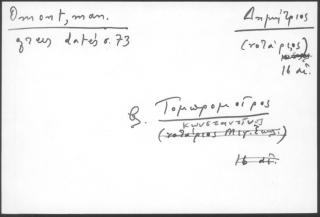 Omont, man.
grecs datés σ. 73
Δημήτριος
(νοτάριος)
16 αἰ.
β. Τομωρομοίρος
Κωνσταντῖνος
(νοτάριος Μεγ. Ἐκκλ.)
16 αἰ.